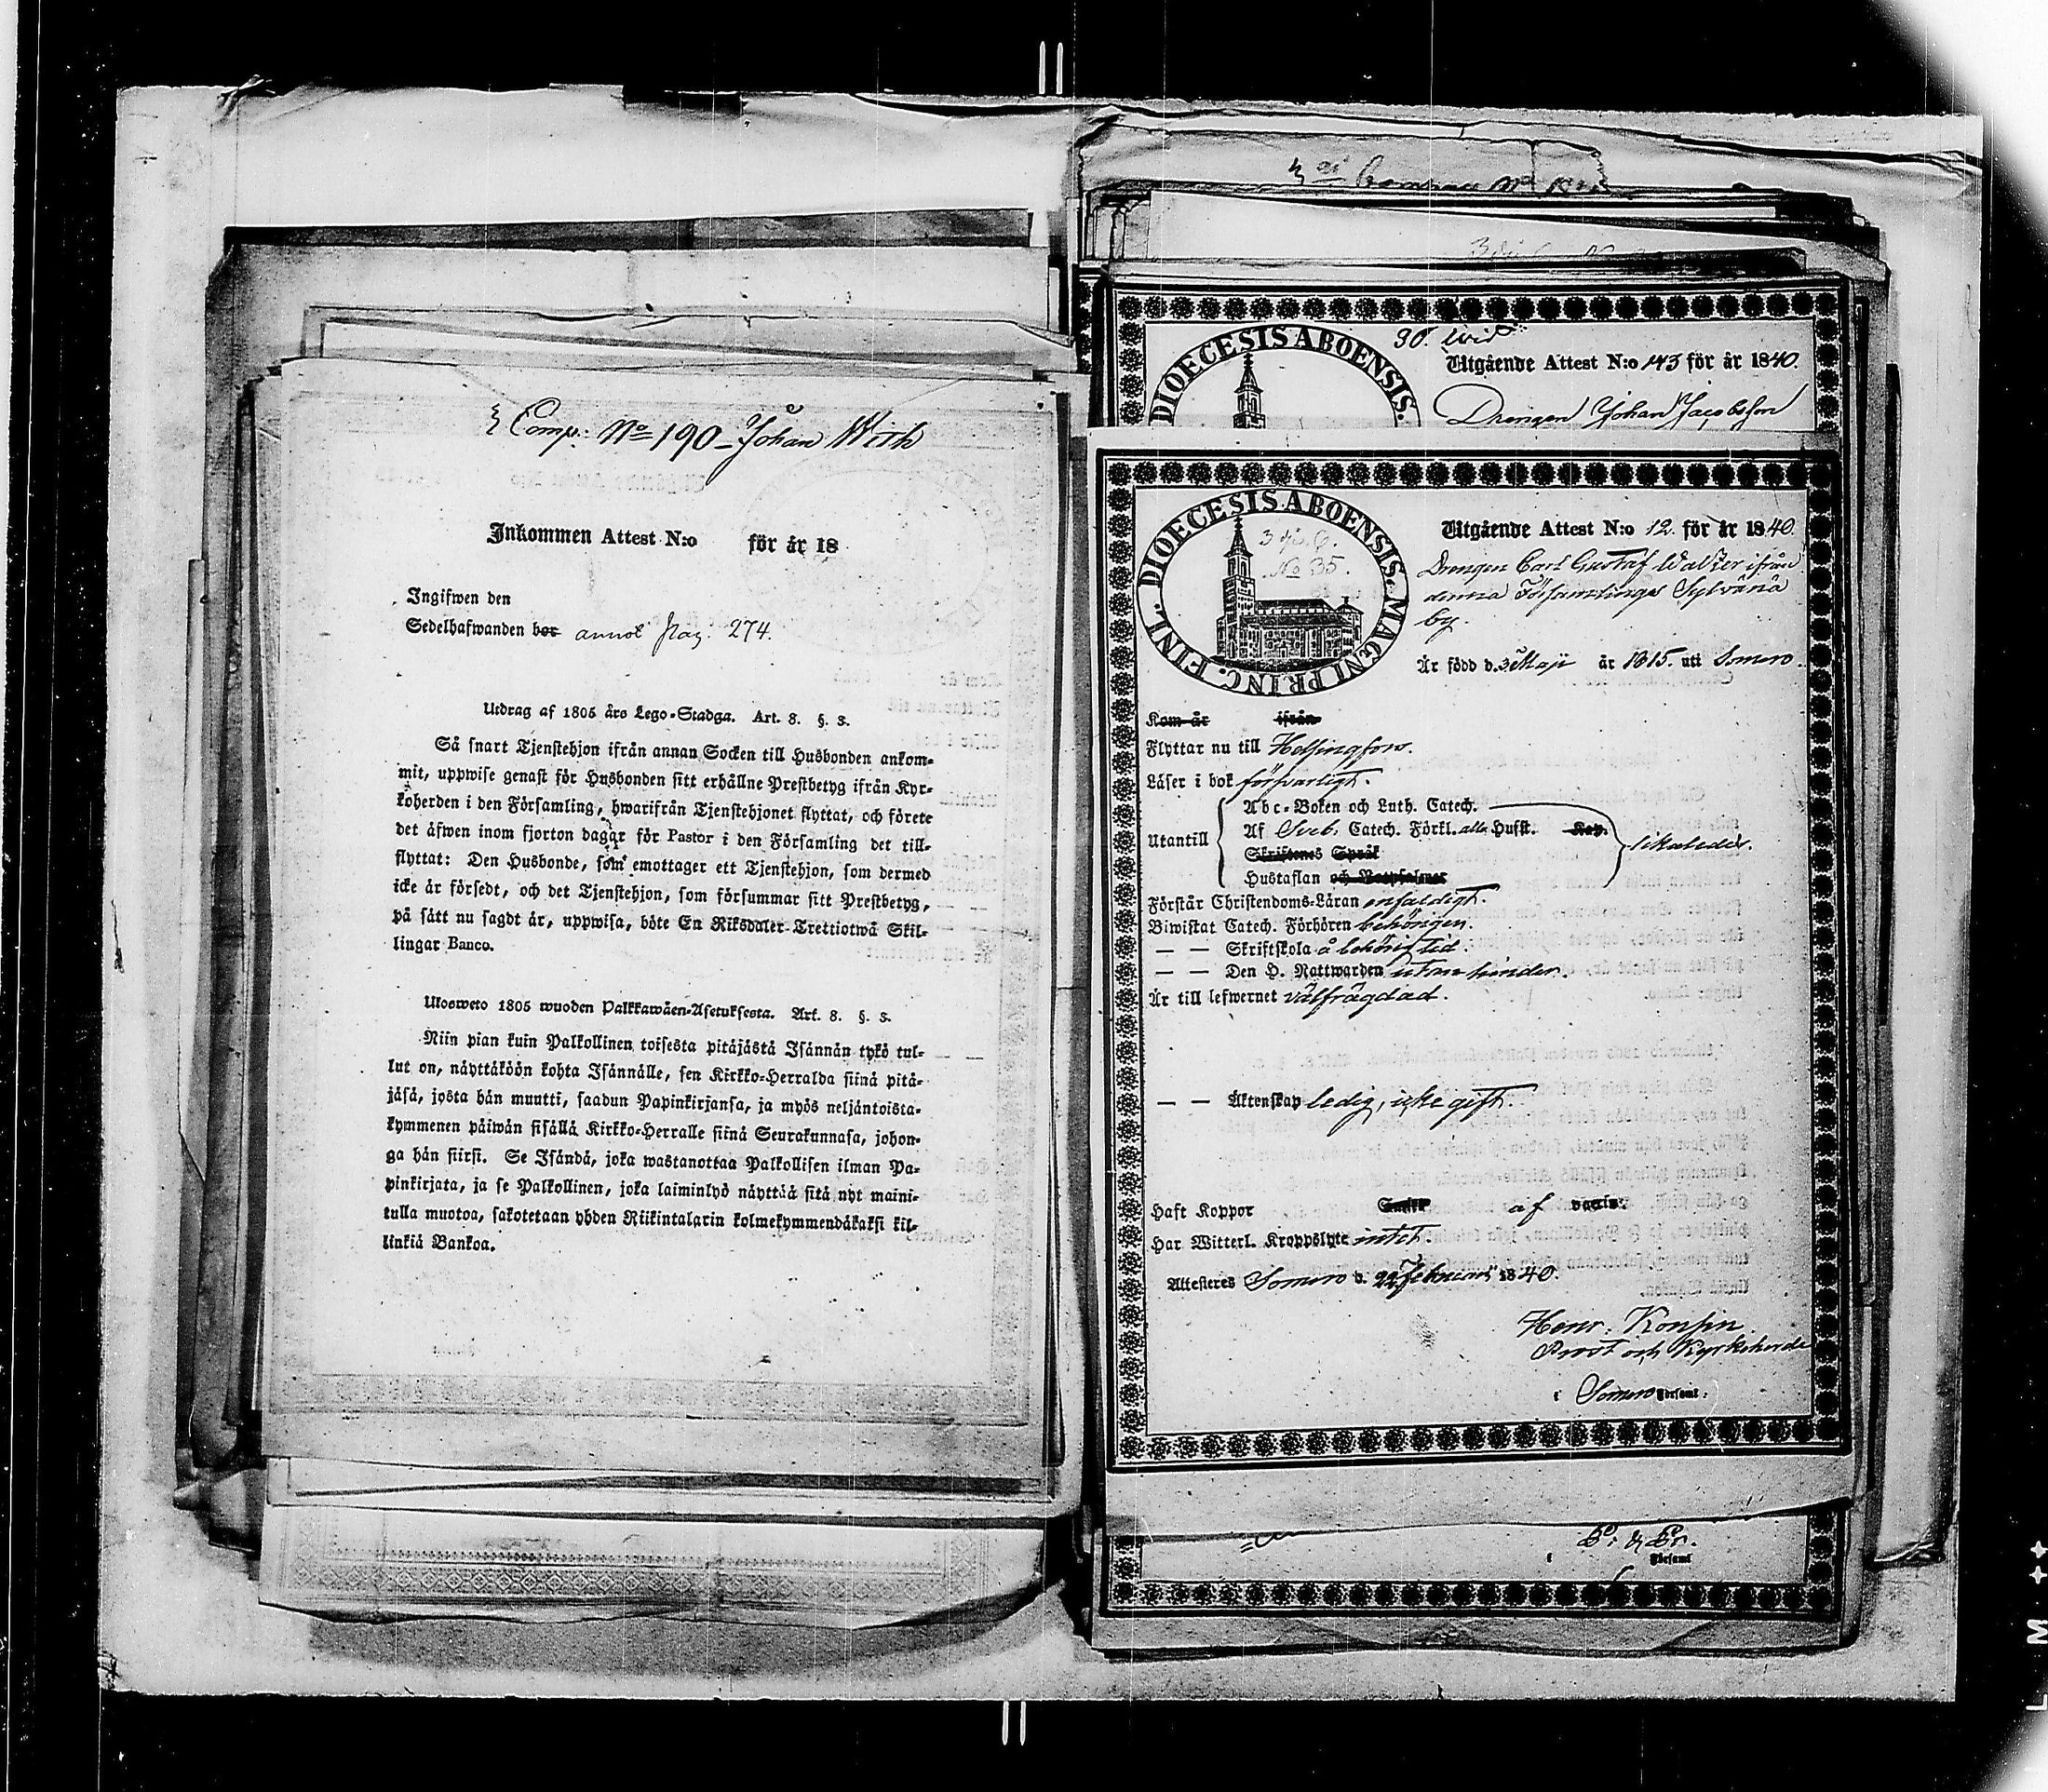 3 Comp: No 190 - Johan With
Inkommen Attest N:o för år 18
Ingifwen den
Sedelhafwanden bor annot pag. 274.
Utdrag af 1805 års Lego-Stadga. Art. 8. §. 3.
Så snart Tjenstehjon ifrån annan Socken till Husbonden ankom-
mit, uppwise genast för Husbonden sitt erhållne Prestbetyg ifrån Kyr-
koherden i den Församling, hwarifrån Tjenstehjonet flyttat, och förete
det åfwen inom fjorton dagar för Pastor i den Församling det till-
flyttat: Den Husbonde, som emottager ett Tjenstehjon, som dermed
icke är försedt, och det Tjenstehjon, som försummar sitt Prestbetyg,
på sätt nu sagdt är, uppwisa, böte En Riksdaler Trettiotwå Skil-
lingar Banco.
Ulosweto 1805 wuoden Palkkawäen-Asetuksesta. Art. 8. §. 3.
Niin pian kuin Palkollinen toisesta pitäjästä Isännän tykö tul-
lut on, näyttäköön kohta Isännälle, sen Kirkko-Herralda siinä pitä-
jäsä, josta hän muutti, saadun Papinkirjansa, ja myös neljäntoista-
kymmenen päiwän sisällä Kirkko-Herralle siinä Seurakunnasa, johon-
ga hän siirsi. Se Isändä, joka wastanottaa Palkollisen ilman Pa-
pinkirjata, ja se Palkollinen, joka laiminlyö näyttää sitä nyt maini-
tulla muotoa, sakotetaan yhden Riikintalarin kolmekymmendäkaksi kil-
linkiä Bankoa.
DIOECESIS ABOENSIS.
Utgående Attest N:o 143 för år 1840.
Drengen Johan Jacobsson
DIOECESIS ABOENSIS. MAGNI PRINC. FINL.
No 35.
Utgående Attest N:o 12. för år 1840.
Drengen Carl Gustaf Walter ifrån
denna Församlings Sylvänä
by.
Är född d. 3 Maji år 1815. uti Somero.
Kom år ifrån
Flyttar nu till Helsingfors.
Läser i bok försvarligt.
Abc-Boken och Luth. Catech.
Utantill Af Sveb. Catech. Förkl. alla Husst. Kap. likaledes.
Skriftenes Språk
Hustaflan och
Förstår Christendoms-Läran enfaldigt.
Biwistat Catech. Förhören behörigen.
— — Skriftskola å behörig tid.
— — Den H. Nattwarden utan hinder.
Är till lefwernet välfrägdad.
— — Äktenskap ledig, icke gift.
Haft Koppor af vaccin:
Har Witterl. Kroppslyte intet
Attesteres Somero d. 22 Februarii 1840.
Henr. Konsin
Prost och Kyrkoherde
i Somero Församl:
i Församl